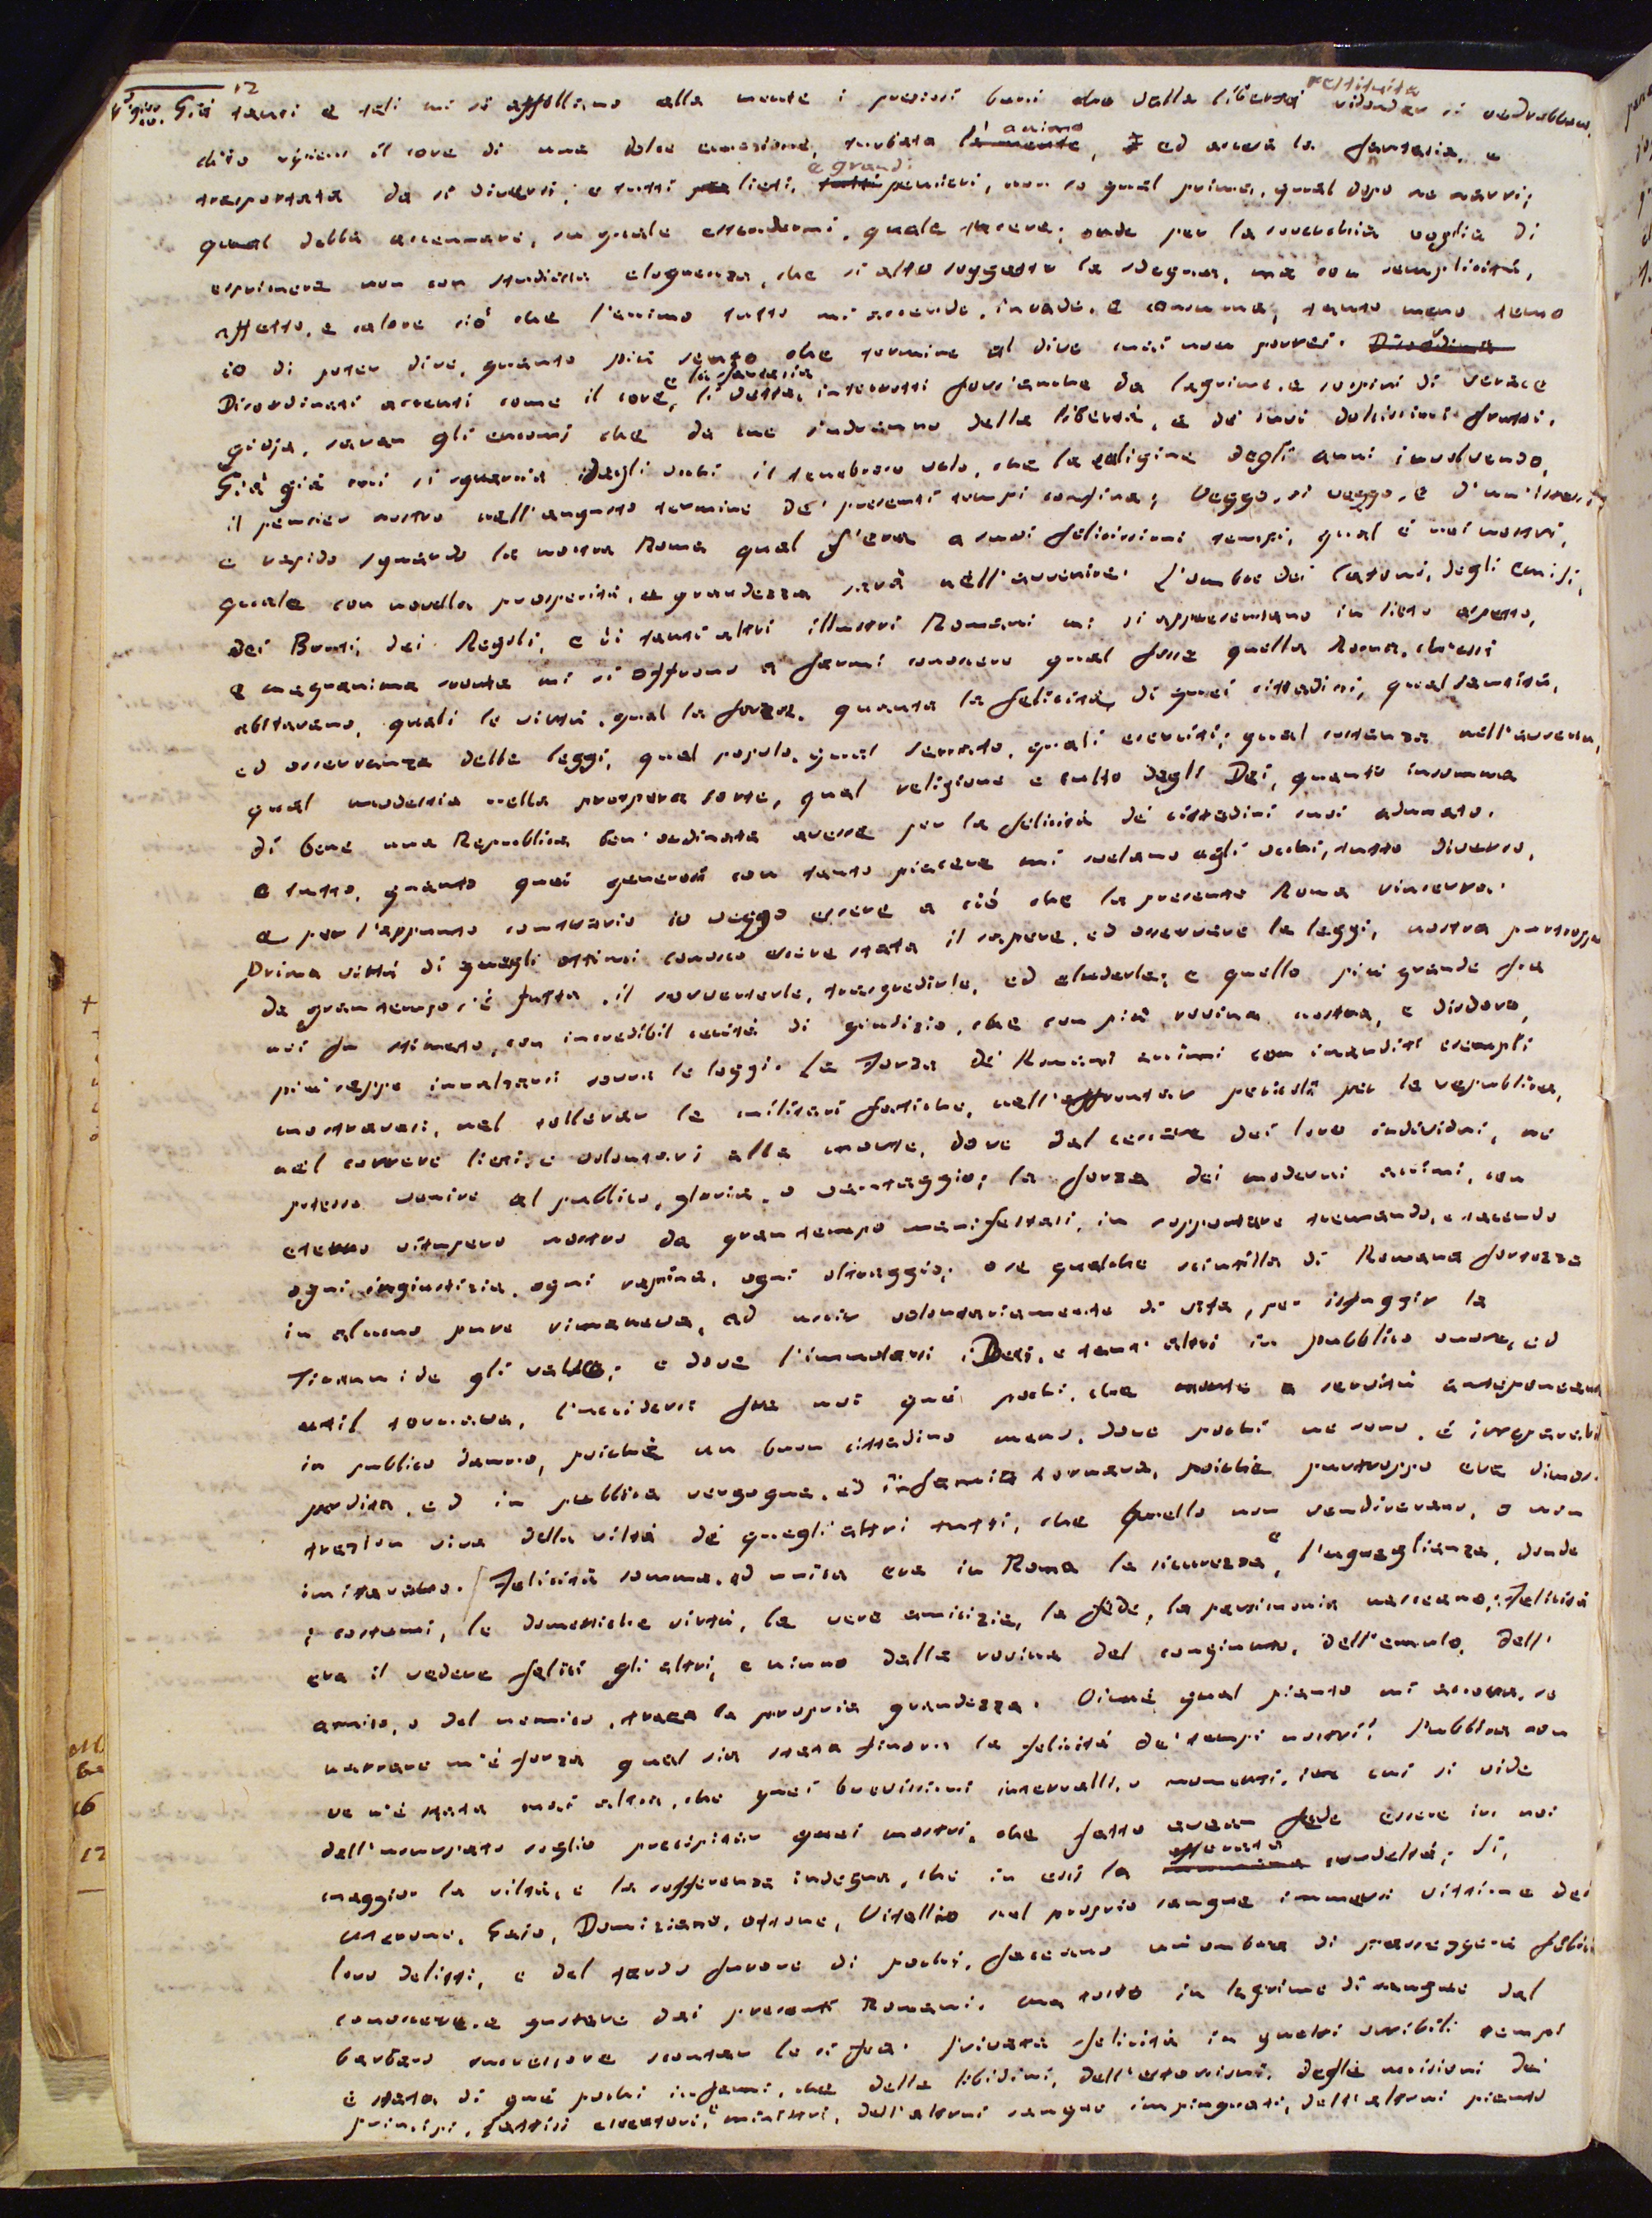 12
restituita
Già tanti e tali mi si affollano alla mente i preziosi beni che dalla libertà ridondar si vedrebbero,
animo
ch'io ripieno il core di una dolce emozione, turbata la mente, ed accesa la fantasia, e
e grandi
trasportata da sì diversi, e tutti lieti, tutti pensieri, non so qual prima, qual dopo ne narri;
qual debba accennare, su quale estendermi, quale tacere; onde per la soverchia voglia di
esprimere non con studiata eloquenza, che sì alto soggetto la sdegna, ma con semplicità,
affetto, e calore ciò che l'animo tutto mi accende, invade, e consuma, tanto meno temo
io di poter dire, quanto più sento che termine al dire mai non porrei. Disordina
e la fantasia
Disordinati accenti come il core, li detta, interrotti forsianche da lagrime, e sospiri di verace
gioja, saran gli encomj che da me s'udranno della libertà, e de' suoi dolcissimi frutti.
Già già mi si squarcia dagli occhi il tenebroso velo, che la caligine degli anni involvendo,
il pensier nostro nell'angusto termine de' presenti tempi confina; Veggo, sì veggo, e d'un'istesso,
e rapido sguardo la nostra Roma qual s'era a suoi felicissimi tempi, qual è nei nostri,
quale con novella prosperità, e grandezza sarà nell'avvenire. L'ombre dei Catoni, degli Emilj,
dei Bruti, dei Regoli, e di tanti altri illustri Romani mi si appresentano in lieto aspetto,
e magnanima mi si offrono a farmi conoscere qual fosse quella Roma, ch'essi
abitavano, quali le virtù, qual la forza, quanta la felicità, di quei cittadini, qual santità,
ed osservanza delle leggi, qual popolo, qual Senato, quali eserciti; qual costanza nell'avversa,
qual modestia nella prospera sorte, qual religione e culto degli Dei, quanto insomma
di bene una Repubblica ben' ordinata avesse per la felicità de' cittadini suoi adunato.
e tutto, quanto quei generosi con tanto piacere mi svelano agli occhi, tutto diverso,
e per l'appunto contrario io veggo essere a ciò che la presente Roma rinserra.
Prima virtù di quegli ottimi conosco essere stata il sapere, ed osservare le leggi, nostra purtroppo
da gran tempo s'è fatta, il sovvertirle, trasgredirle, ed eluderle; e quello più grande fra
noi fu stimato, con incredibil cecità di giudizio, che con più rovina nostra, e disdoro,
più seppe innalzarsi sovra le leggi. La Forza de' Romani animi con inauditi esempli
mostravasi, nel tollerar le militari fatiche, nell'affrontar pericoli per la repubblica,
nel correre lieti, e volontari alla morte, dove dal cessare dei loro individui, ne
potesse venire al publico, gloria, o vantaggio; la forza dei moderni animi, con
eterno vitupero nostro da gran tempo manifestasi, in sopportare tremando, e tacendo
ogni ingiustizia, ogni rapina, ogni oltraggio; o se qualche scintilla di Romana fortezza
in alcuno pure rimaneva, ad uscir volontariamente di vita, per isfuggir la
Tirannide gli valse; e dove l'immolarsi i Decj, e tant' altri in pubblico onore, ed
util tornava, l'uccidersi fra noi quei pochi, che morte a servitù anteponeano
in publico danno, poichè un buon cittadino meno, dove pochi ne sono, è irreparabil
perdita, ed in pubblica vergogna, ed infamia tornava, poichè purtroppo era dimos-
trazion viva della viltà de' quegli altri tutti, che quello non vendicavano, o non
e
imitavano. Felicità somma, ed unica era in Roma la sicurezza, l'uguaglianza, donde
i costumi, le domestiche virtù, le vere amicizie, la fede, la parsimonia nasceano; Felicità
era il vedere felici gli altri, e niuno dalla rovina del congiunto, dell'emulo, dell'
amico, o del nemico, traea la propria grandezza. Oimè qual pianto mi accora, se
narrare m'è forza qual sia stata finora la felicità de' tempi nostri! Pubblica non
ve n'è stata mai altra, che quei brevissimi intervalli, o momenti, in cui si vide
dall'usurpato soglio precipitar quei mostri, che fatto avean fede essere in noi
efferata
maggior la viltà, e la sofferenza indegna, che in essi la crudeltà; sì,
Nerone, Gajo, Domiziano, Ottone, Vitellio nel proprio sangue immersi vittime dei
loro delitti, e del tardo furore di pochi, faceano un'ombra di passeggera felici
conoscere, e gustare dai presenti Romani, ma tosto in lagrime di sangue dal
barbaro successore scontar le si fea. Privata felicità in questi orribili tempi
è stata di que' pochi infami, che delle libidini, dell'estorsioni, degli uccisioni dei
principi, fattisi esecutori, e ministri, dell'altrui sangue impinguati, dell'altrui pianto